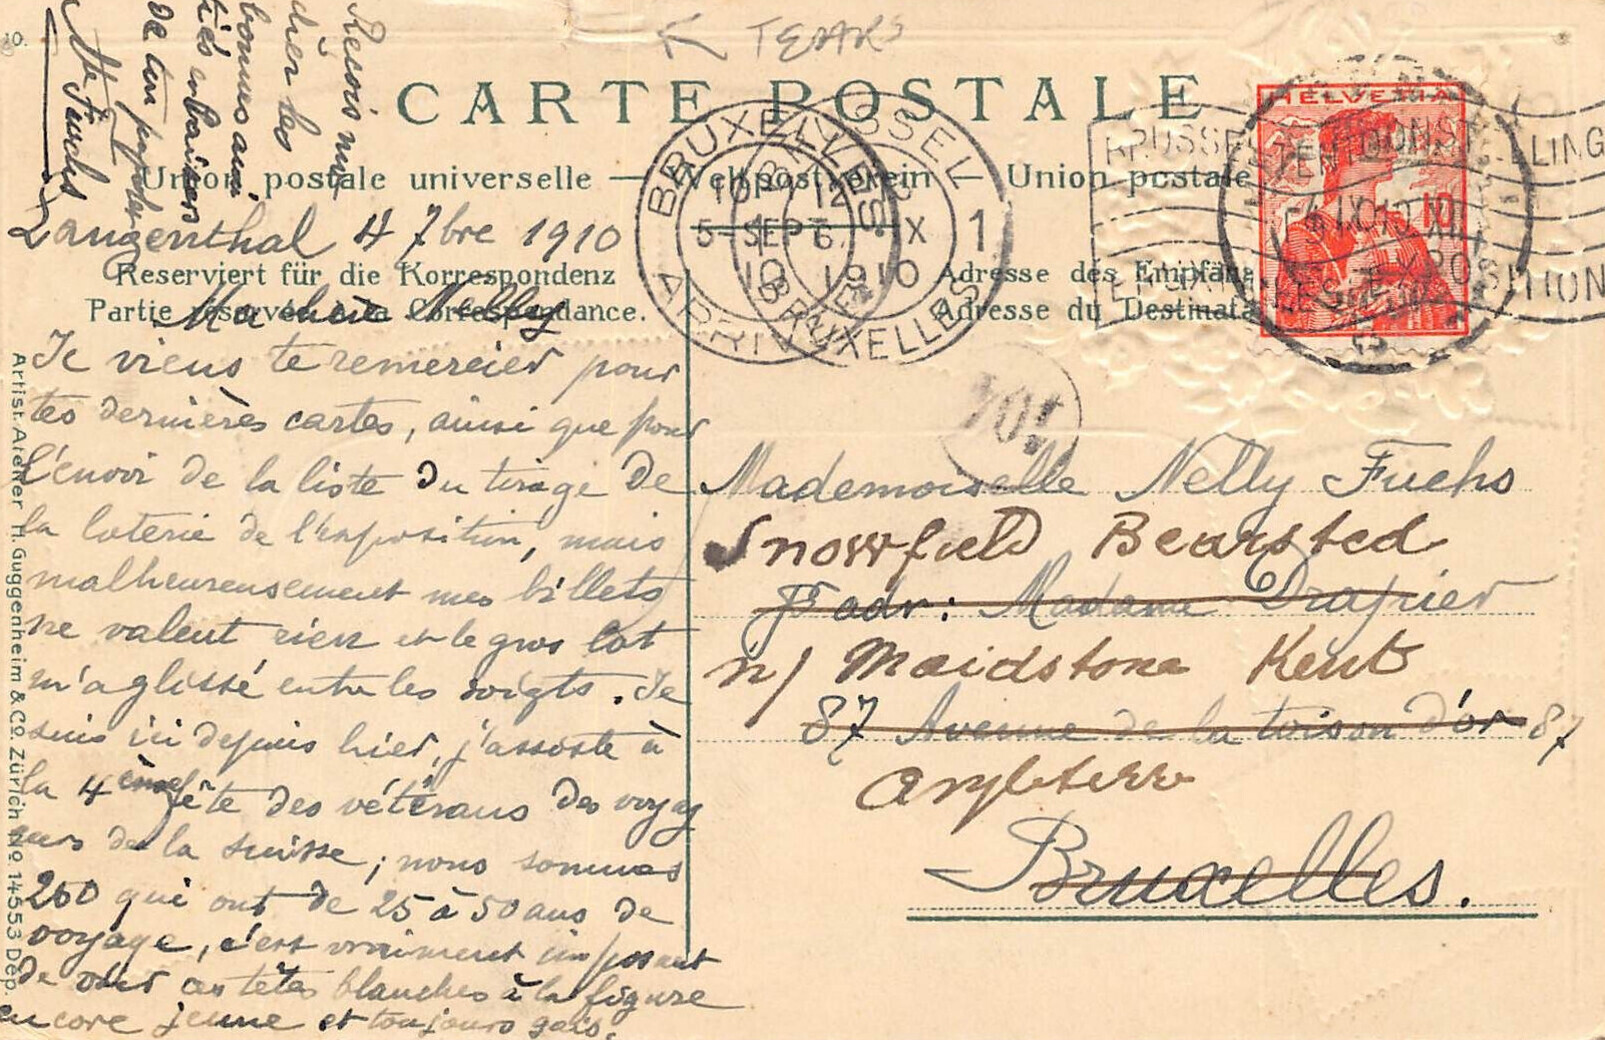 TEARS
CARTE POSTALE
Union postale universelle — Weltpostverein — Union postale
Reserviert für die Korrespondenz
Partie réservée à la Correspondance.
Adresse des Empfän
Adresse du Destinata
HELVETIA
10
BRUXELLES
5 SEPT
10
ARRIVEE
BRÜSSEL
12
6. IX
1910
1
BRUXELLES
EXPOSITION
Langenthal 4 7bre 1910
Ma chère Nelly
Je viens te remercier pour
tes dernières cartes, ainsi que pour
l'envoi de la liste du tirage de
la loterie de l'exposition, mais
malheureusement mes billets
ne valent rien et le gros lot
m'a glissé entre les doigts. Je
suis ici depuis hier, j'assiste à
la 4ème fête des vétérans des voyag
eurs de la Suisse; nous sommes
260 qui ont de 25 à 50 ans de
voyage, c'est vraiment imposant
de voir ces têtes blanches à la figure
encore jeune et toujours gais.
Reçois ma
chère les
bonnes ami
tiés et baisers
de ton
Fuchs
Mademoiselle Nelly Fuchs
Snowfield Bearsted
adr: Madame Drapier
n/ Maidstone Kent
87 Avenue de la toison d'or 87
Angleterre
Bruxelles.
Artist. Atelier H. Guggenheim & Co. Zürich No. 14553 Dép.